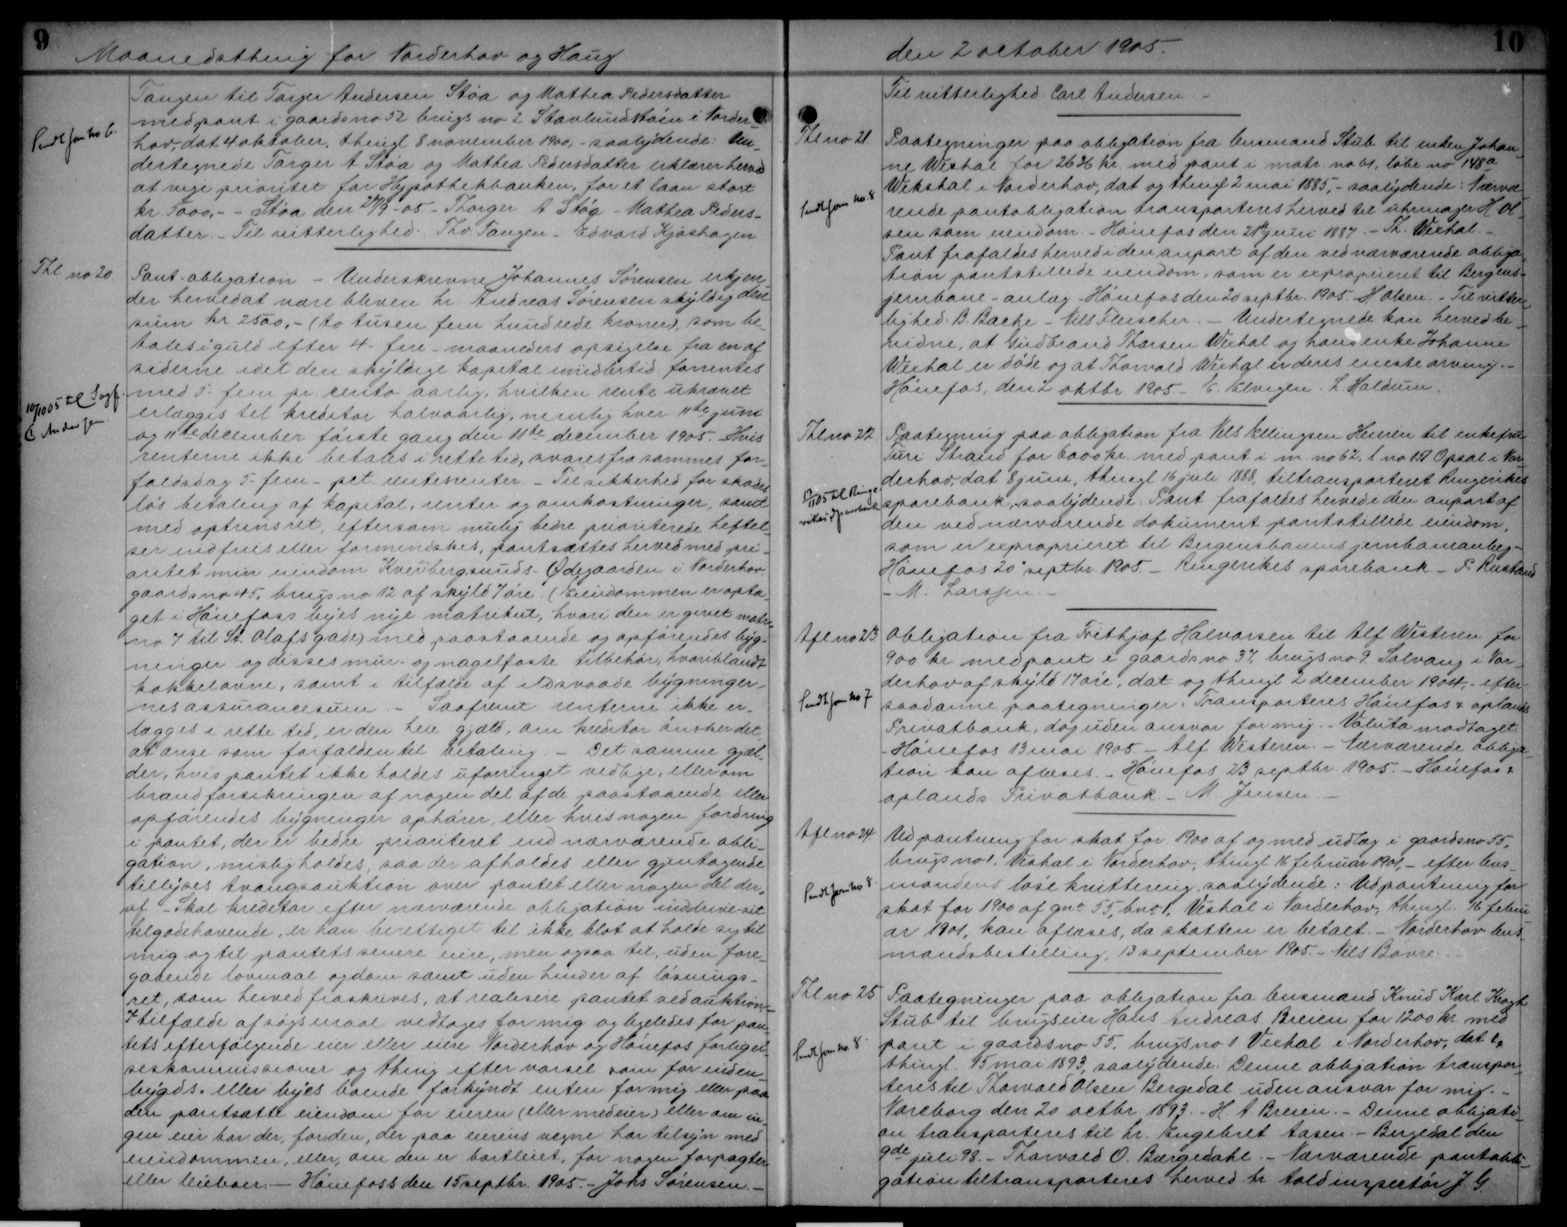 9
Maanedsthing for Norderhov og Haug
Tangen til Torger Andersen Støa og Mathea Pedersdatter
med pant i gaardsno 52 brugs no 2 i Norder-
Sendt som no 6.
hov, dat 4 oktober, thingl 8 november 1900, - saalydende: Un-
dertegnede Torger A Støa og Mathea Pedersdatter erklærer herved
at vige prioritet for Hypothekbanken, for et laan stort
kr 5000,- - Støa den 27/9-05 - Thorger A Støa - Mathea Peders-
datter. - Til vitterlighed. Thv Tangen - Edvard Kjøshagen
Thl no 20
Pant-obligation - Underskrevne Johannes Sørensen erkjen-
der hervedat være bleven hr Andreas Sørensen skyldig den
sum kr 2500,- (to tusen fem hundrede kroner), som be-
tales i guld efter 4 - fire - maaneders opsigelse fra en af
siderne idet den skyldige kapital imidlertid forrentes
med 5 - fem pr. cento aarlig, hvilken rente ukrævet
10/10 05 til Sagf.
C Andersen
erlægges til kreditor halvaarlig, nemlig hver 11te juni
og 11te december første gang den 11te december 1905. - Hvis
renterne ikke betales i rette tid, svares fra sammes for-
faldsdag 5 - fem - pct. renters renter - Til sikkerhed for skades-
løs betaling af kapital, renter og omkostninger, samt
med optrinsret, eftersom mulig bedre prioriterede heftel-
ser indfries eller formindskes, pantsættes herved med pri-
oritet min eiendom Kvernbergsunds-Ødegaarden i Norderhov
gaardsno 45, brugsno 12 af skyld 7 øre. (Eiendommen er opta-
get i Hønefoss byes nye matrikul, hvori den er givet matr.
no 7 til St. Olafs gade) med paastaaende og opførendes byg-
ninger og disses mur- og nagelfaste tilbehør, hvoriblandt
kakkelovne, samt i tilfælde af ildsvaade bygninger-
nes assurancesum. - Saafremt renterne ikke er-
lægges i rette tid, er den hele gjæld, om kreditor ønsker det,
at anse som forfalden til betaling. - Det samme gjæl-
der, hvis pantet ikke holdes uforringet vedlige, eller om
brandforsikringen af nogen del af de paastaaende eller
opførendes bygninger ophører, eller hvis nogen fordring
i pantet, der er bedre prioriteret end nærværende obli-
gation, misligholdes, saa der afholdes eller gjentagende
tillyses tvangsauktion over pantet eller nogen del der-
af - Skal kreditor efter nærværende obligation inddrive sit
tilgodehavende, er han berettiget til ikke blot at holde sig til
mig og til pantets senere eiere, men ogsaa til, uden fore-
gaaende lovmaal og dom samt uden hinder af løsnings-
ret, som herved fraskrives, at realisere pantet ved auktion. -
I tilfælde af søgsmaal vedtages for mig og ligeledes for pan-
tets efterfølgende eier eller eiere Norderhov og Hønefos forligel-
seskommissioner og thing efter varsel som for inden-
bygds- eller byes boende forkyndt enten for mig eller paa
den pantsatte eiendom for eieren (eller medeier) eller om in-
gen eier bor der, for den, der paa eierens vegne har tilsyn med
eiendommen, eller, om den er bortleiet, for nogen forpagter
eller leieboer. - Hønefoss den 15 septbr. 1905. - Johs Sørensen. -
10
den 2 october 1905.
Til vitterlighed. Carl Andersen. -
Thl no 21
Paategninger paa obligation fra lensmand Stub til enken Johan-
ne Wexhal for 2636 kr med pant i matr. no 61, løbe no 148a
Sendt som no 8
Wekshal i Norderhov, dat og thingl 2 mai 1885, - saalydende: Nærvæ-
rende pantobligation transporteres herved til uhrmager H Ol-
sen som eiendom. - Hønefos den 21de juni 1887. - Th. Wexhal. -
Pant frafaldes herved i den anpart af den ved nærværende obliga-
tion pantstillede eiendom, som er exproprieret til Bergens-
jernbane-anlæg - Hønefos den 20 septbr. 1905. - H Olsen. - Til vitter-
lighed. B. Bache - Nils Fleischer. - Undertegnede kan herved be-
vidne, at Gudbrand Thorsen Wexhal og hans enke Johanne
Wexhal er døde og at Thorvald Wexhal er deres eneste arving. -
Hønefos, den 2 oktbr. 1905 - E. Elvigen. L Haldum.
Thl no 22
Paategning paa obligation fra Nils Ellingsen Heieren til enkefrue
Turi Strand for 6000 kr. med pant i m no 62. l no 151 Opsal i Nor-
derhov, dat 8 juni, thingl 16 juli 1888, tiltransporteret Ringerikes
til Ringe-
rikes sparebank
sparebank, saalydende: Pant frafaldes herved i den anpart af
den ved nærværende dokument pantstillede eiendom,
som er exproprieret til Bergensbanens jernbaneanlæg -
Hønefos 20 septbr. 1905. - Ringerikes sparebank - P. Rustand
- M. Larssen. -
Afl no 23
Obligation fra Frithjof Halvorsen til Alf Westeren for
900 kr med pant i gaardsno 37, brugsno 9 Solvang i Nor-
derhov af skyld 17 øre, dat og thingl 2 december 1904, - efter
Sendt som no 7
saadanne paategninger: Transporteres Hønefos & oplands
Privatbank, dog uden ansvar for mig. - Valuta modtaget.
- Hønefos 13 mai 1905 - Alf Westeren. - Nærværende obliga-
tion kan aflæses. - Hønefos 23 septbr 1905. - Hønefos &
oplands Privatbank - M Jensen. -
Afl no 24
Udpantning for skat for 1900 af og med udlæg i gaardsno 55,
brugsno 1, Vexhal i Norderhov, thingl 16 februar 1901, - efter lens-
Sendt som no 8
mandens løse kvittering, saalydende: Udpantning for
skat for 1900 af gno 55, bno 1, Vexhal i Norderhov, thingl. 16 febru-
ar 1901, kan aflæses, da skatten er betalt. - Norderhov lens-
mandsbestilling, 13 september 1905. - Nils Bovre. -
Thl no 25
Paategninger paa obligation fra lensmand Knud Karl Krogh
Stub til brugseier Hans Andreas Breien for 1200 kr med
Sendt som no 8.
pant i gaardsno 55, brugsno 1 Vexhal i Norderhov, dat 1,
thingl. 15 mai 1893, saalydende: Denne obligation transpor-
teres til Thorvald Olsen Bergedal uden ansvar for mig. -
Noreborg den 20 octbr 1893. - H A Breien. - Denne obligati-
on transporteres til hr. Engebret Aasen. - Bergedal den
9de juli 98. - Thorvald O. Bærgedahl. - Nærværende pantobli-
gation tiltransporteres herved hr toldinspectør J. G.